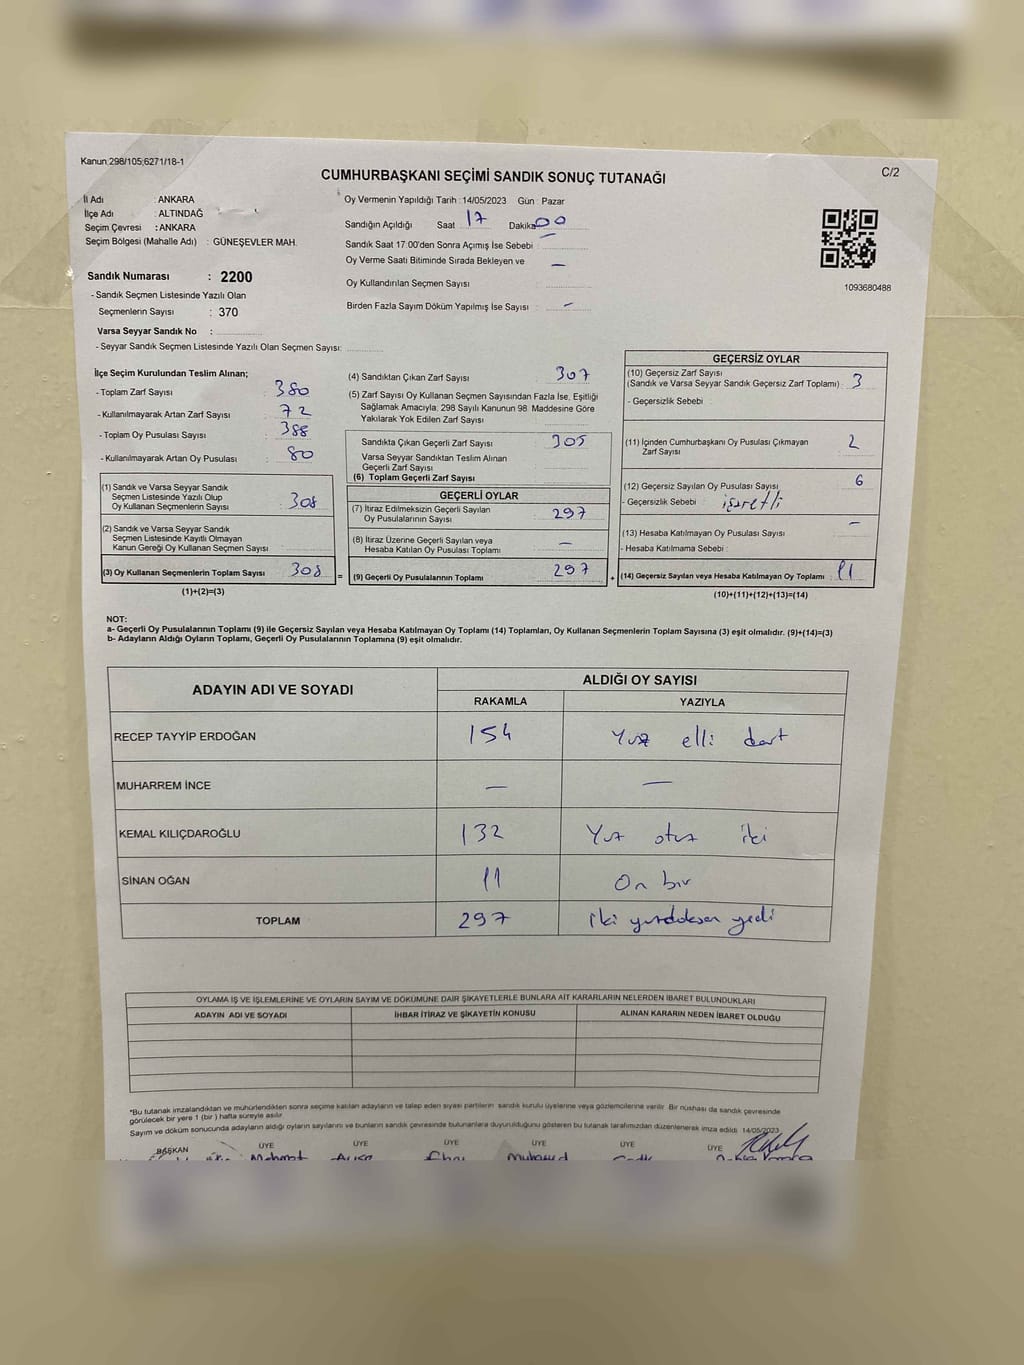 Kanun 298/105;6271/18-1
C/2
CUMHURBAŞKANI SEÇİMİ SANDIK SONUÇ TUTANAĞI
İl Adı : ANKARA
İlçe Adı : ALTINDAĞ
Seçim Çevresi : ANKARA
Seçim Bölgesi (Mahalle Adı) : GÜNEŞEVLER MAH.
Sandık Numarası : 2200
- Sandık Seçmen Listesinde Yazılı Olan
Seçmenlerin Sayısı : 370
Varsa Seyyar Sandık No :
- Seyyar Sandık Seçmen Listesinde Yazılı Olan Seçmen Sayısı:
Oy Vermenin Yapıldığı Tarih : 14/05/2023 Gün : Pazar
Sandığın Açıldığı Saat 17 Dakika 00
Sandık Saat 17:00'den Sonra Açımış İse Sebebi : —
Oy Verme Saati Bitiminde Sırada Bekleyen ve —
Oy Kullandırılan Seçmen Sayısı :
Birden Fazla Sayım Döküm Yapılmış İse Sayısı : —
1093680488
İlçe Seçim Kurulundan Teslim Alınan;
- Toplam Zarf Sayısı : 380
- Kullanılmayarak Artan Zarf Sayısı : 72
- Toplam Oy Pusulası Sayısı : 388
- Kullanılmayarak Artan Oy Pusulası : 80
(1) Sandık ve Varsa Seyyar Sandık
Seçmen Listesinde Yazılı Olup
Oy Kullanan Seçmenlerin Sayısı : 308
(2) Sandık ve Varsa Seyyar Sandık
Seçmen Listesinde Kayıtlı Olmayan
Kanun Gereği Oy Kullanan Seçmen Sayısı :
(3) Oy Kullanan Seçmenlerin Toplam Sayısı 308
(1)+(2)=(3)
(4) Sandıktan Çıkan Zarf Sayısı : 307
(5) Zarf Sayısı Oy Kullanan Seçmen Sayısından Fazla İse, Eşitliği
Sağlamak Amacıyla; 298 Sayılı Kanunun 98. Maddesine Göre
Yakılarak Yok Edilen Zarf Sayısı :
Sandıkta Çıkan Geçerli Zarf Sayısı : 305
Varsa Seyyar Sandıktan Teslim Alınan
Geçerli Zarf Sayısı
(6) Toplam Geçerli Zarf Sayısı :
GEÇERLİ OYLAR
(7) İtiraz Edilmeksizin Geçerli Sayılan
Oy Pusulalarının Sayısı : 297
(8) İtiraz Üzerine Geçerli Sayılan veya
Hesaba Katılan Oy Pusulası Toplamı : —
= (9) Geçerli Oy Pusulalarının Toplamı : 297
GEÇERSİZ OYLAR
(10) Geçersiz Zarf Sayısı
(Sandık ve Varsa Seyyar Sandık Geçersiz Zarf Toplamı) : 3
- Geçersizlik Sebebi :
(11) İçinden Cumhurbaşkanı Oy Pusulası Çıkmayan
Zarf Sayısı : 2
(12) Geçersiz Sayılan Oy Pusulası Sayısı : 6
- Geçersizlik Sebebi : işaretli
(13) Hesaba Katılmayan Oy Pusulası Sayısı : —
- Hesaba Katılmama Sebebi :
+ (14) Geçersiz Sayılan veya Hesaba Katılmayan Oy Toplamı : 11
(10)+(11)+(12)+(13)=(14)
NOT:
a- Geçerli Oy Pusulalarının Toplamı (9) ile Geçersiz Sayılan veya Hesaba Katılmayan Oy Toplamı (14) Toplamları, Oy Kullanan Seçmenlerin Toplam Sayısına (3) eşit olmalıdır. (9)+(14)=(3)
b- Adayların Aldığı Oyların Toplamı, Geçerli Oy Pusulalarının Toplamına (9) eşit olmalıdır.
ADAYIN ADI VE SOYADI
ALDIĞI OY SAYISI
RAKAMLA YAZIYLA
RECEP TAYYİP ERDOĞAN 154 Yüz elli dört
MUHARREM İNCE — —
KEMAL KILIÇDAROĞLU 132 Yüz otuz iki
SİNAN OĞAN 11 On bir
TOPLAM 297 iki yüzdoksan yedi
OYLAMA İŞ VE İŞLEMLERİNE VE OYLARIN SAYIM VE DÖKÜMÜNE DAİR ŞİKAYETLERLE BUNLARA AİT KARARLARIN NELERDEN İBARET BULUNDUKLARI
ADAYIN ADI VE SOYADI İHBAR İTİRAZ VE ŞİKAYETİN KONUSU ALINAN KARARIN NEDEN İBARET OLDUĞU
*Bu tutanak imzalandıktan ve mühürlendikten sonra seçime katılan adayların ve talep eden siyasi partilerin sandık kurulu üyelerine veya gözlemcilerine verilir. Bir nüshası da sandık çevresinde
görülecek bir yere 1 (bir ) hafta süreyle asılır.
Sayım ve döküm sonucunda adayların aldığı oyların sayılarını ve bunların sandık çevresinde bulunanlara duyurulduğunu gösteren bu tutanak tarafımızdan düzenlenerek imza edildi. 14/05/2023
BAŞKAN ÜYE ÜYE ÜYE ÜYE ÜYE ÜYE
Mehmet